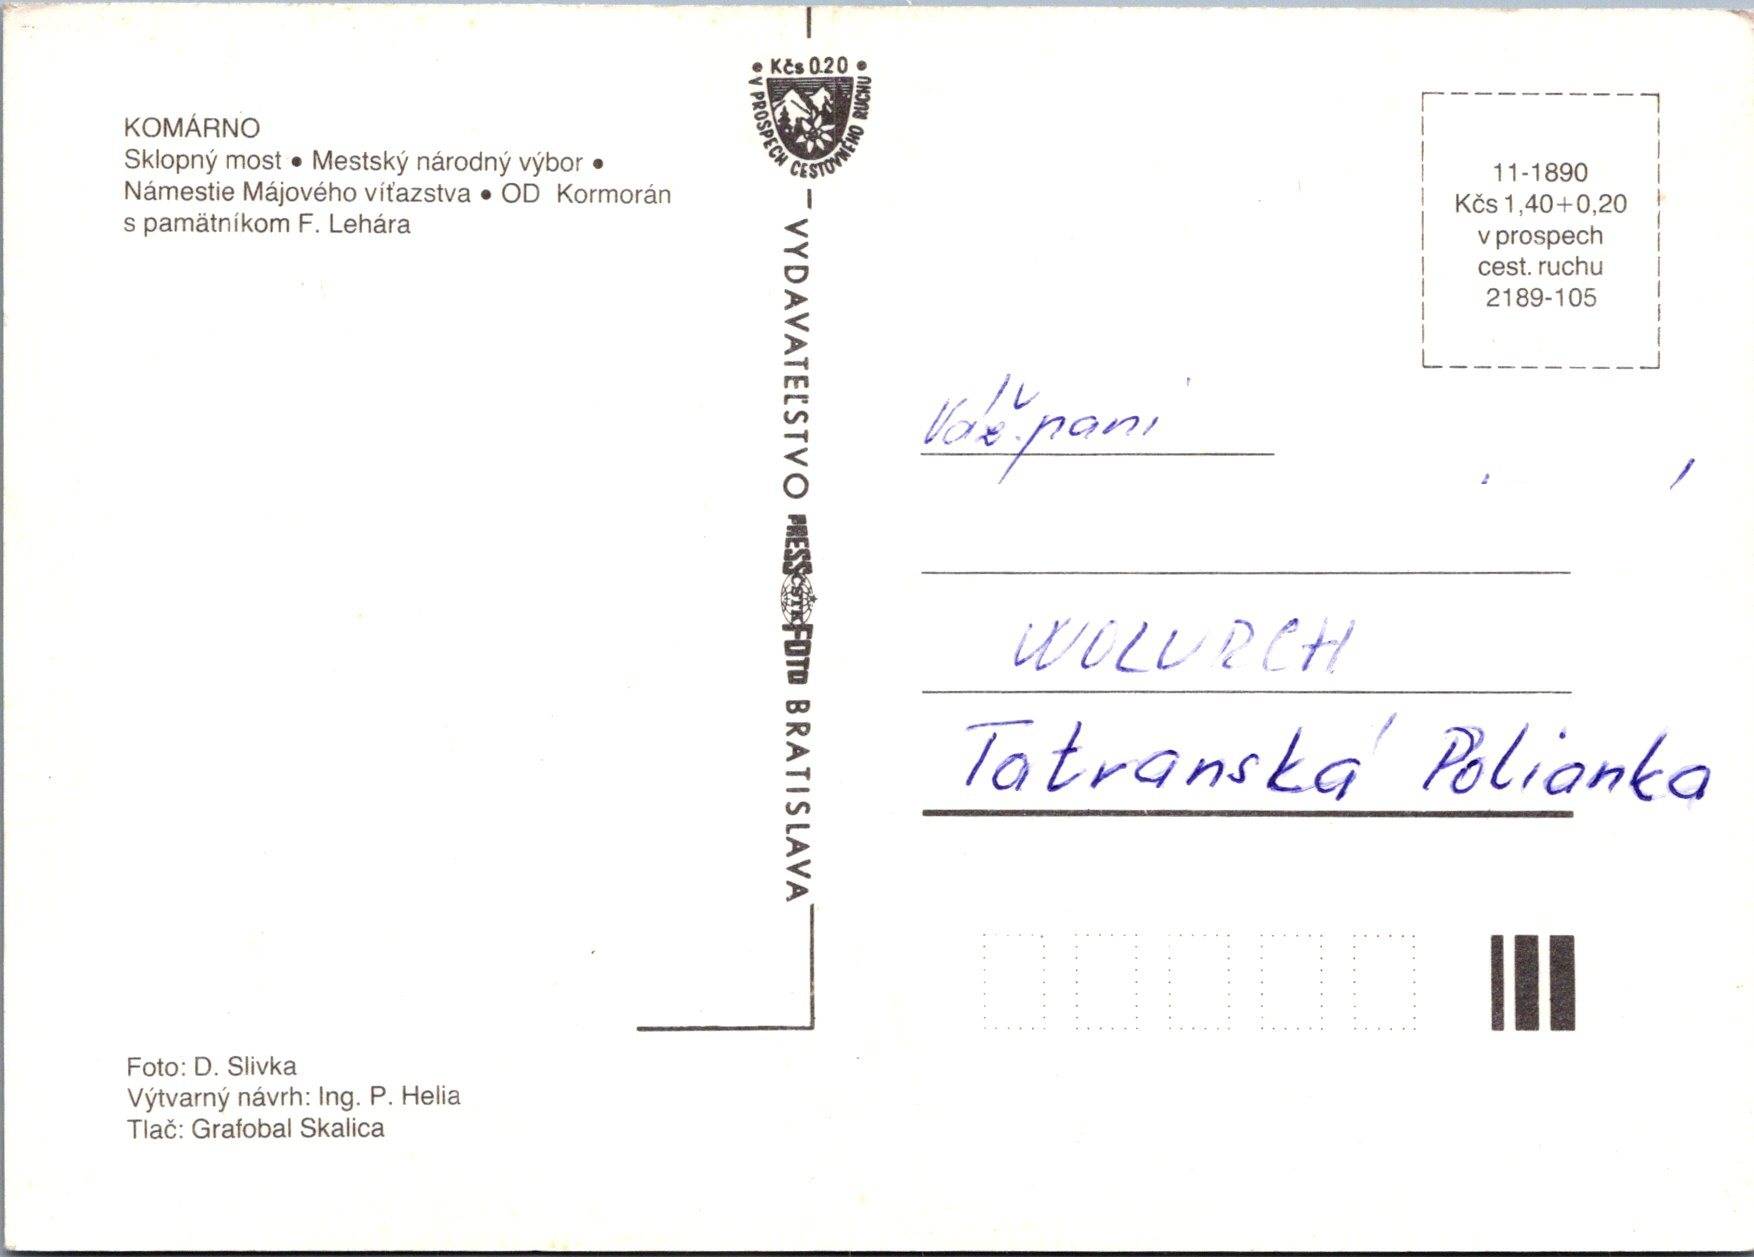 KOMÁRNO
Sklopný most • Mestský národný výbor •
Námestie Májového víťazstva • OD Kormorán
s pamätníkom F. Lehára
• Kčs 0.20 •
V PROSPECH CESTOVNÉHO RUCHU
VYDAVATEĽSTVO PRESSFOTO BRATISLAVA
ČSTK
11-1890
Kčs 1,40+0,20
v prospech
cest. ruchu
2189-105
Váž. pani
Tatranská Polianka
Foto: D. Slivka
Výtvarný návrh: Ing. P. Helia
Tlač: Grafobal Skalica